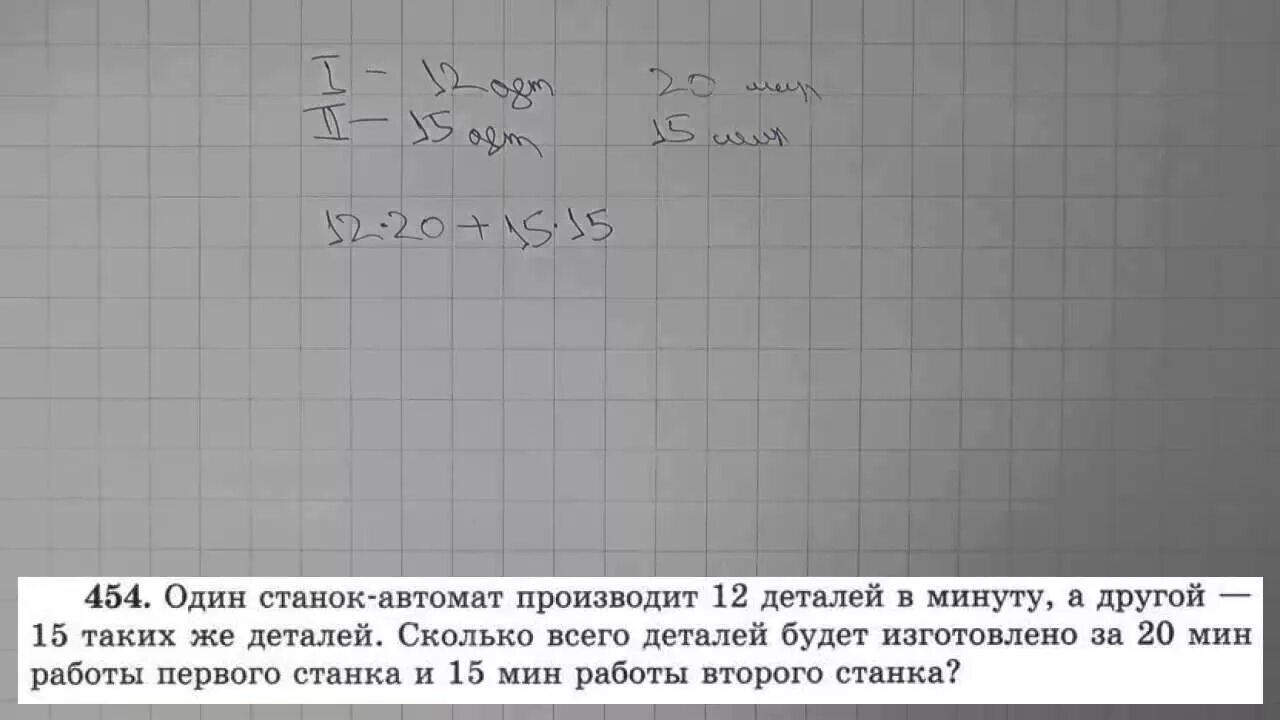 I - 12 дет 20 мин
II - 15 дет 15 мин
12·20 + 15·15
454. Один станок-автомат производит 12 деталей в минуту, а другой —
15 таких же деталей. Сколько всего деталей будет изготовлено за 20 мин
работы первого станка и 15 мин работы второго станка?